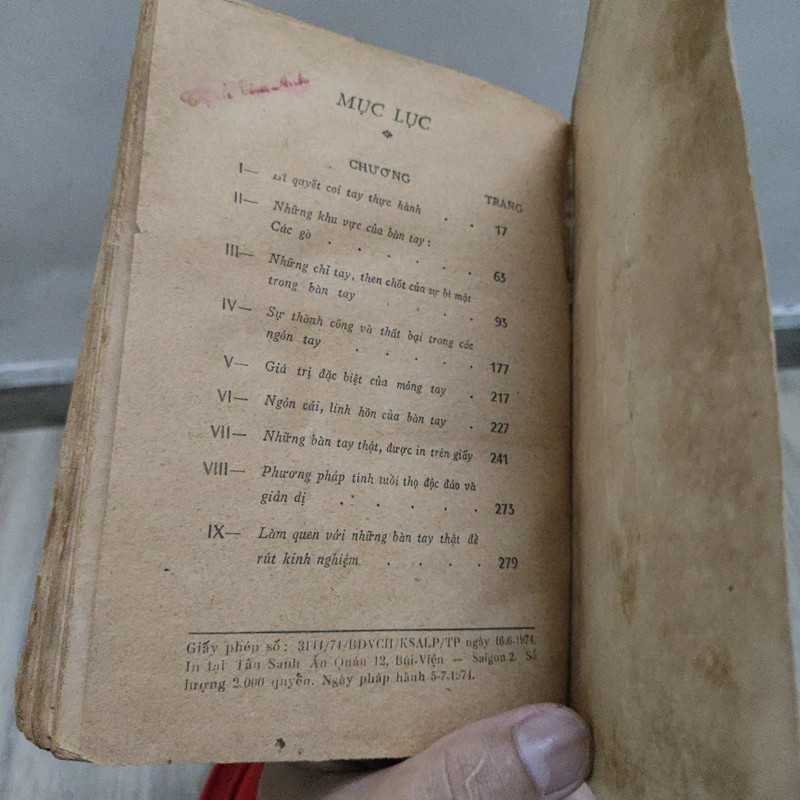 MỤC LỤC
CHƯƠNG
TRANG
I— Bí quyết coi tay thực hành . . 17
II— Những khu vực của bàn tay :
Các gò . . . . . . 63
III— Những chỉ tay, then chốt của sự bí mật
trong bàn tay . . . . 93
IV— Sự thành công và thất bại trong các
ngón tay . . . . . 177
V— Giá trị đặc biệt của móng tay . 217
VI— Ngón cái, linh hồn của bàn tay . 227
VII— Những bàn tay thật, được in trên giấy 241
VIII— Phương pháp tính tuổi thọ độc đáo và
giản dị . . . . . 273
IX— Làm quen với những bàn tay thật để
rút kinh nghiệm . . . . 279
Giấy phép số : 3141/74/BDVCH/KSALP/TP ngày 16.6.1974.
In tại Tân Sanh Ấn Quán 12, Bùi-Viện — Saigon 2. Số
lượng 2.000 quyển. Ngày pháp hành 5-7-1974.